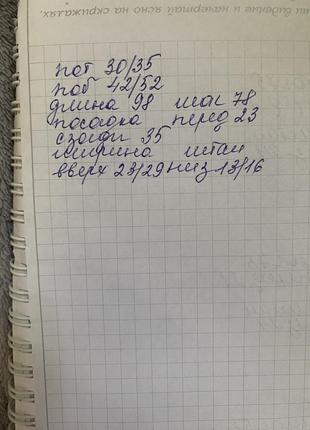 ши видение и начертай ясно на скрижалях.
пот 30/35
поб 42/52
длина 98 шаг 78
посадка перед 23
сзади 35
ширина штан
вверх 23/29 низ 13/16